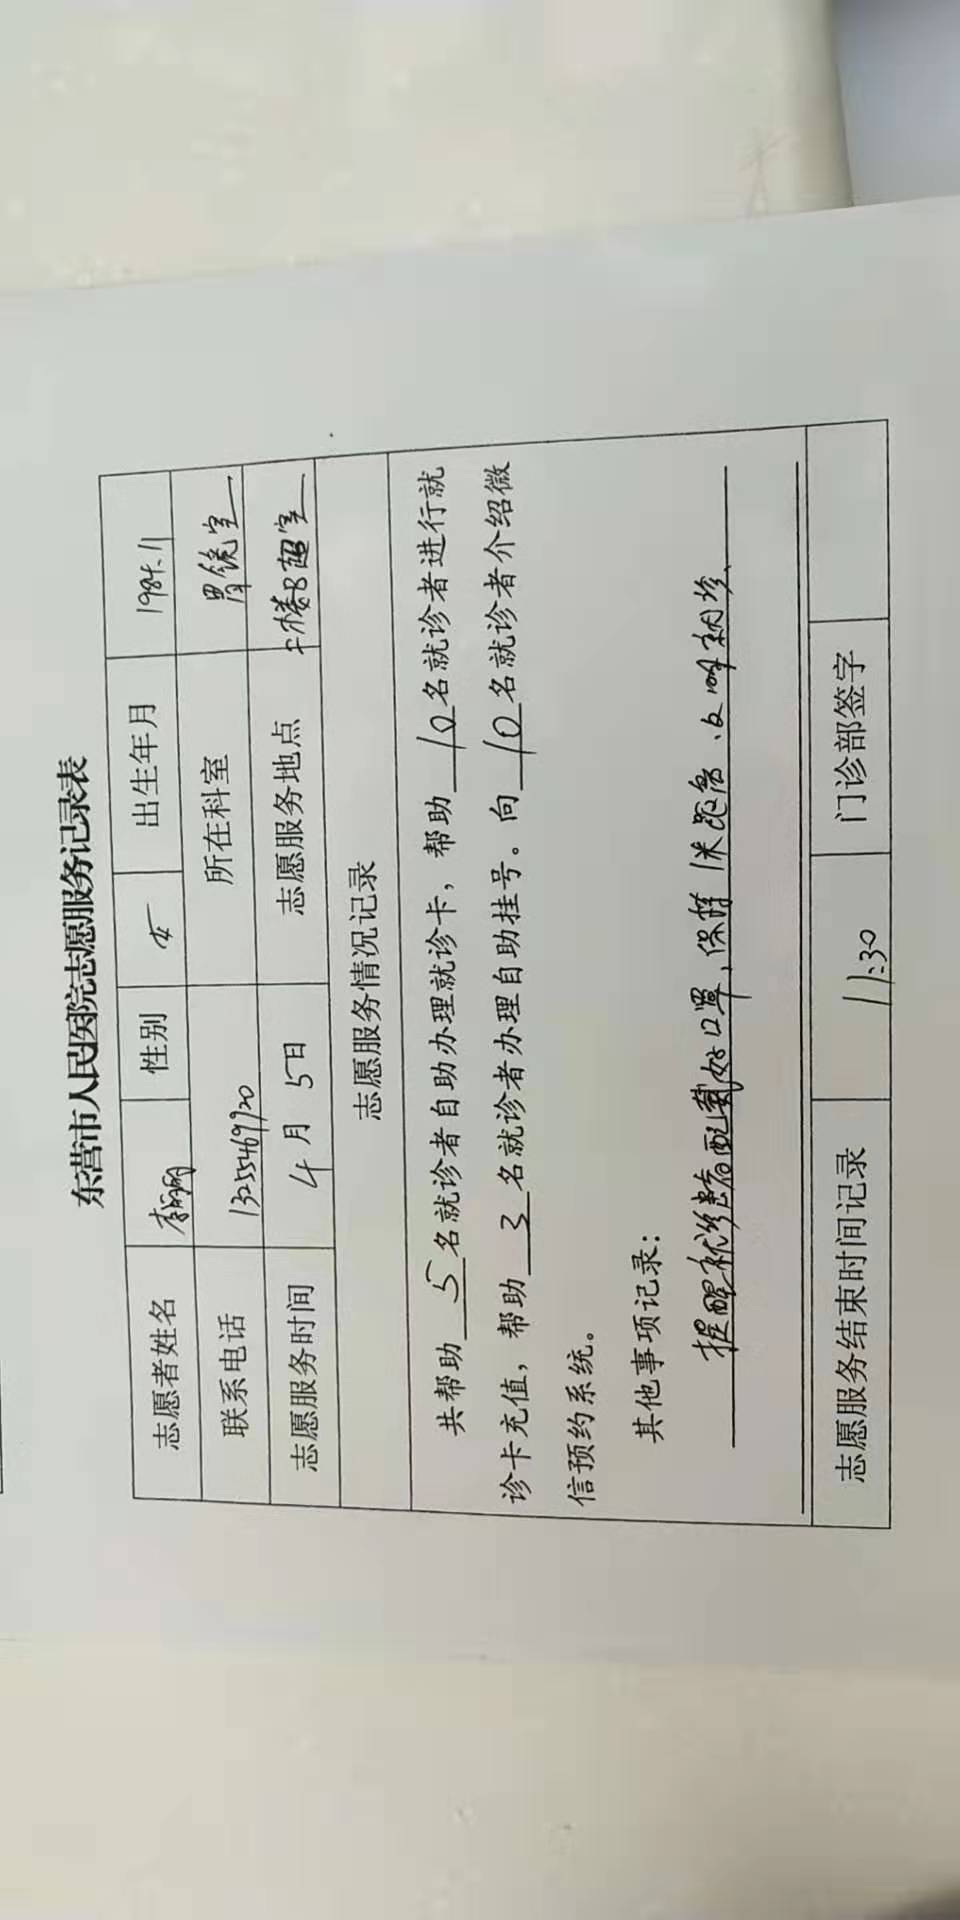 东营市人民医院志愿服务记录表
志愿者姓名 李丽丽 性别 女 出生年月 1984.11
联系电话 13255469920 所在科室 胃镜室
志愿服务时间 4月5日 志愿服务地点 二楼B超室
志愿服务情况记录
共帮助 5 名就诊者自助办理就诊卡，帮助 10 名就诊者进行就
诊卡充值，帮助 3 名就诊者办理自助挂号。向 10 名就诊者介绍微
信预约系统。
其他事项记录：
提醒就诊患者配戴好口罩，保持1米距离、文明就诊、
志愿服务结束时间记录 11:30 门诊部签字